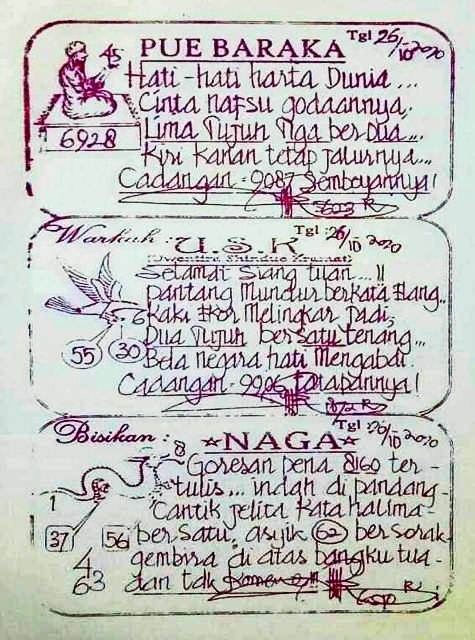 PUE BARAKA Tgl 26/10 2020
Hati-hati harta Dunia ...
Cinta nafsu godaannya,
Lima Tujuh Tiga ber Dua ...
6928
Kiri kanan tetap jalurnya...
Cadangan - 9087 Semboyannya!
Warkah : U.S.K Tgl : 26/10 2020
Selamat Siang tuan ... !!
pantang Mundur berkata Elang..
6
kaki Ekor Melingkar jadi,
Dua Tujuh bersatu tenang...
55 30
Bela negara hati Mengabdi.
Cadangan - 9906 Harapannya!
872 R
Bisikan : NAGA Tgl : 26/10 2020
8
Goresan pena 8160 ter -
tulis ... indah di pandang -
1
Cantik jelita kata halima -
37 56
ber satu, asyik 62 bersorak -
gembira di atas bangku tua -
4
63
dan tdk